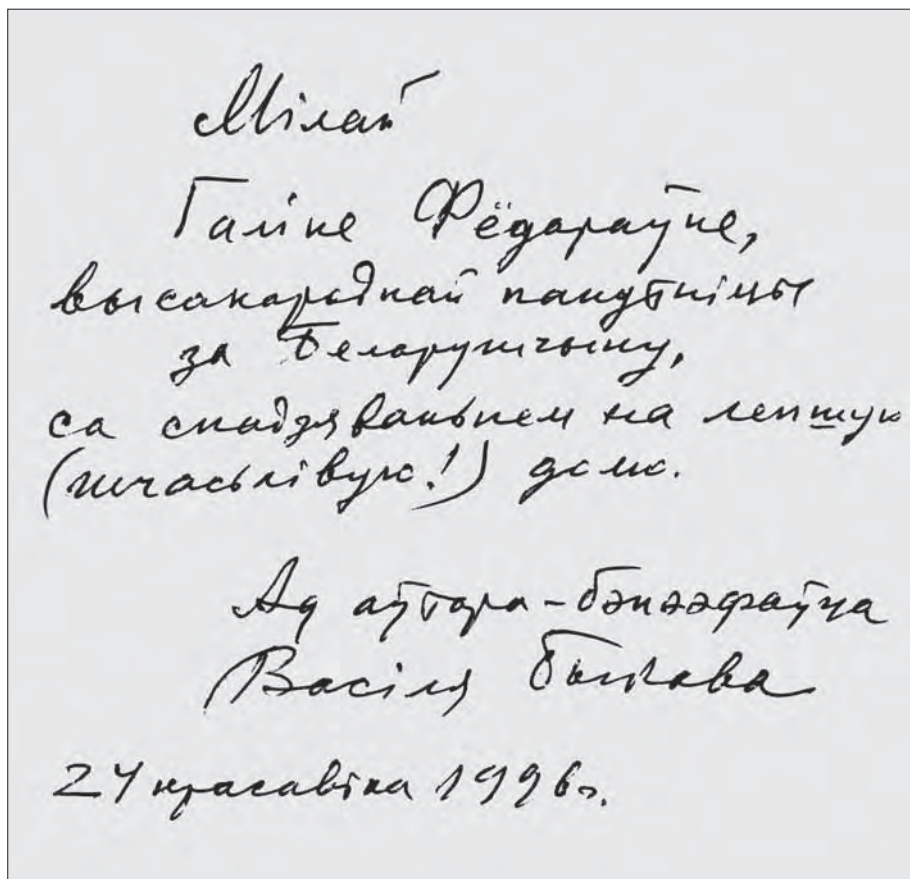 Мілай
Галіне Фёдараўне,
высакароднай пакутніцы
за Беларушчыну,
са спадзяваньнем на лепшую
(шчасьлівую!) долю.
Ад аўтара-бэнээфаўца
Васіля Быкава
24 красавіка 1996г.